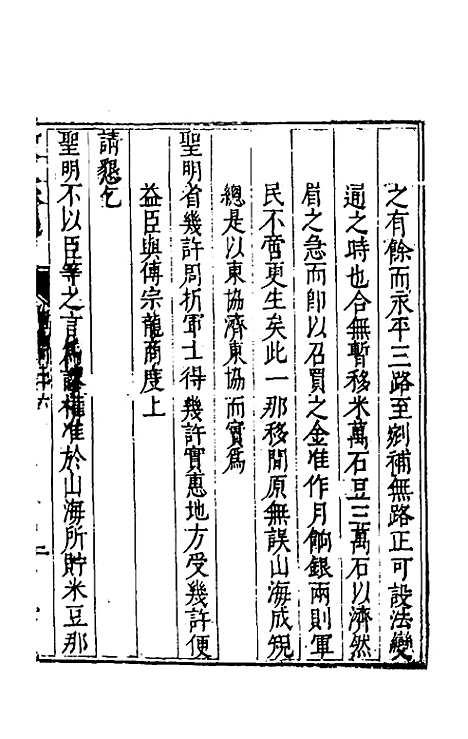 之有餘而永平三路至剜補無路正可設法變
通之時也合無暫移米萬石豆三萬石以濟然
眉之急而即以召買之金准作月餉銀兩則軍
民不啻更生矣此一那移間原無誤山海成規
總是以東協濟東協而實為
聖明省幾許周折軍士得幾許實惠地方受幾許便
益臣與傅宗龍商度上
請懇乞
聖明不以臣等之言為謬准於山海所貯米豆那